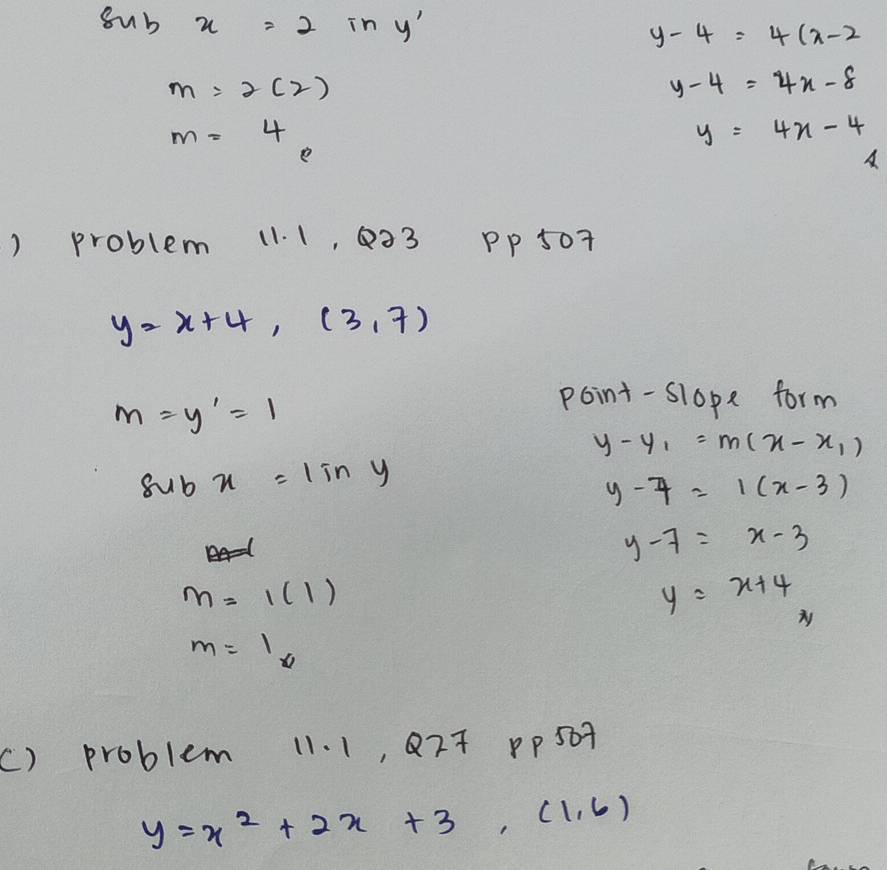 sub x = 2 in y'
m = 2(2)
m = 4
y - 4 = 4(x-2
y-4 = 4x - 8
y = 4x - 4
) problem 11.1, Q23 pp 507
y = x+4, (3,7)
m = y' = 1
sub x = 1 in y
m = 1(1)
m = 1
point-slope form
y - y₁ = m(x - x₁)
y - 7 = 1(x-3)
y - 7 = x - 3
y = x+4
c) problem 11.1, Q27 pp 507
y = x² + 2x + 3, (1,6)